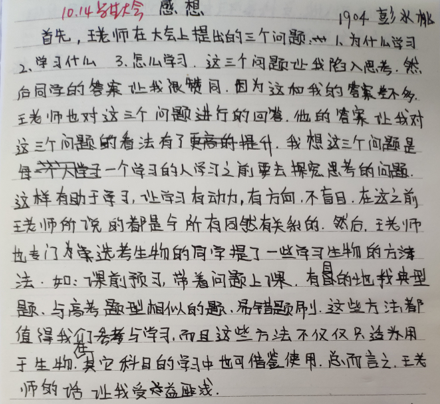 10.14 大会 感想
1904 彭
首先,王老师在大会上提出的三个问题, 1、为什么学习
2、学习什么 3、怎么学习. 这三个问题让我陷入思考. 然
后同学的答案让我很赞同,因为这和我的答案差不多.
王老师也对这三个问题进行的回答. 他的答案让我对
这三个问题的看法有了更高的提升. 我想这三个问题是
每一个学习的人学习之前要去探究思考的问题.
这样有助于学习,让学习有动力,有方向,不盲目. 在这之前
王老师所说的都是今所有同然有关系的. 然后,王老师
也专门为选考生物的同学提了一些学习生物的方法
法. 如:课前预习,带着问题上课. 有目的地找典型
题,与高考题型相似的题,易错题刷. 这些方法都
值得我们参考与学习,而且这些方法不仅仅只适为用
于生物,在其它科目的学习中也可借鉴使用. 总而言之,王老
师的话 让我受益匪浅.